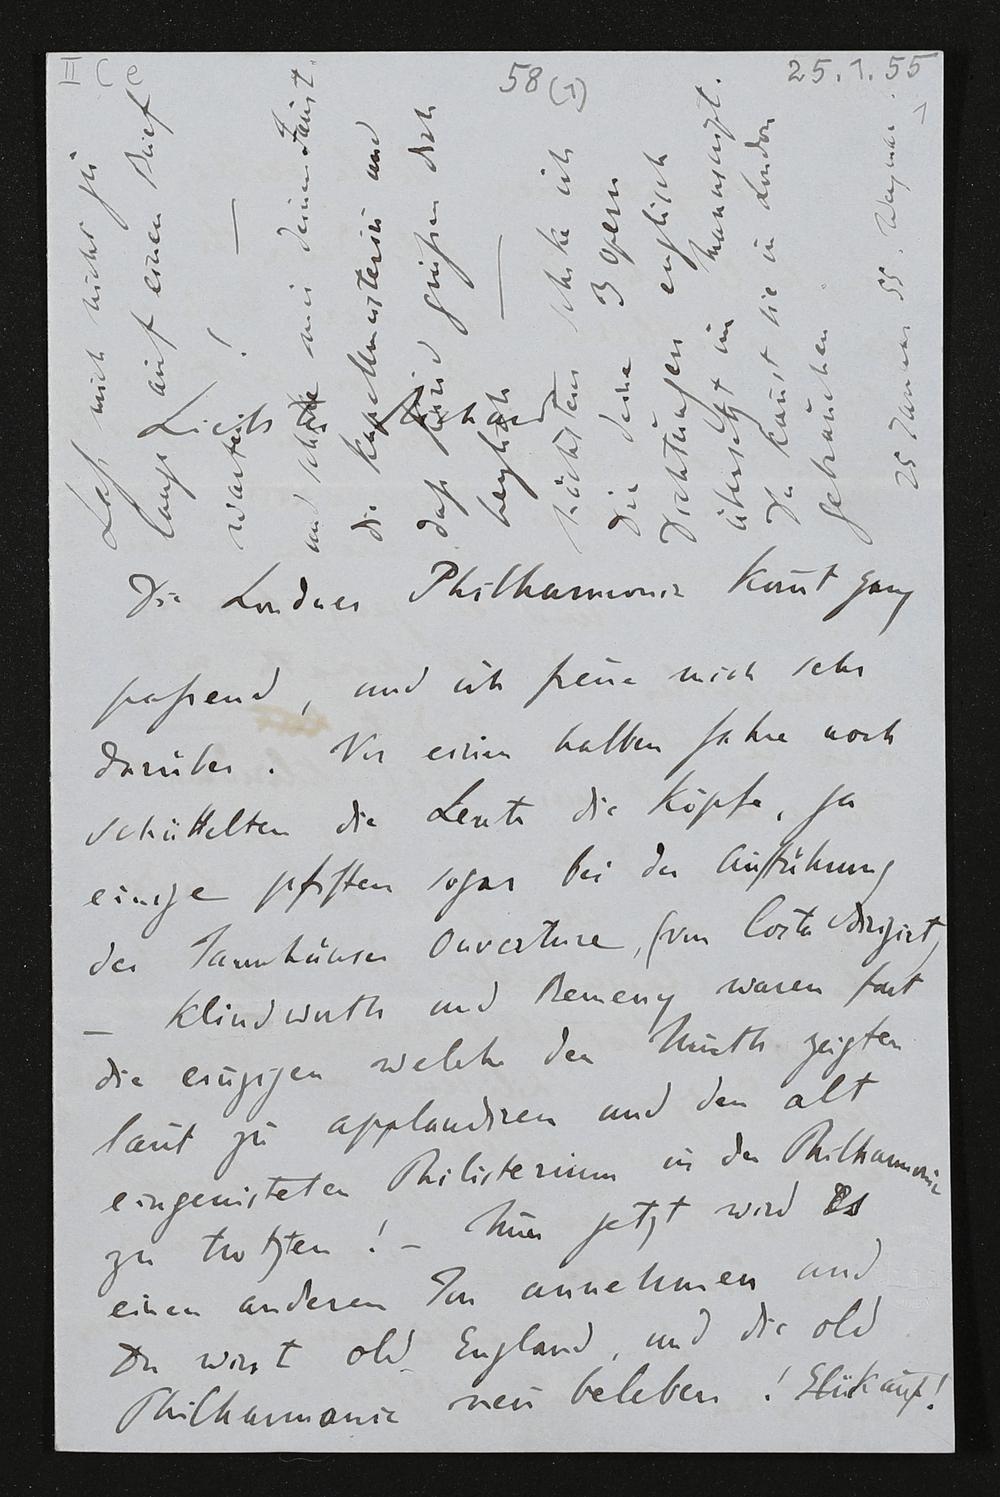 II C e
58 (1)
25.1.55
Liebster Richard
Die Londner Philharmonie kom̄t ganz
passend, und ich freue mich sehr
darüber. Vor einem halben Jahre noch
schüttelten die Leute die Köpfe, ja
einige pfiffen sogar bei der Aufführung
der Tannhäuser Ouverture, (von Costa dirigirt)
— Klindworth und Remeny waren fast
die einzigen welche den Muth zeigten
laut zu applaudiren und den alt
eingenisteten Philisterium in der Philharmonie
zu trotzten! – Nun jetzt wird Es
einen anderen Ton annehmen und
Du wirst old England, und die old
Philharmonie neu beleben! Glückauf!
Laß mich nicht zu
lange auf einen Brief
warten!
—
und schike mir deinen Faust.
die Kapellmeisterin und
daß Kind grüßen dich
herzlich
—
nächstens schike ich
Dir deine 3 Opern
Dichtungen englisch
übersetzt im Manuscript.
Du kañst sie in London
gebrauchen.
25 Januar 55. Weymar.